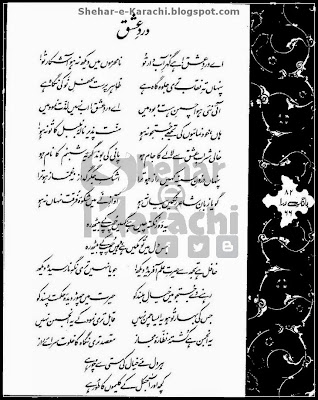 Shehar-e-Karachi.blogspot.com
دردِ عشق
اے دردِ عشق! ہے گہرِ آب دار تُو نامحرموں میں دیکھ نہ ہو آشکار تُو
پنہاں تہِ نقاب تری جلوہ گاہ ہے ظاہر پرست محفلِ نو کی نگاہ ہے
آئی نئی ہوا چمنِ ہست و بود میں اے دردِ عشق! اب نہیں لذت نمود میں
ہاں، خود نمائیوں کی تجھے جستجو نہ ہو منت پذیر نالۂ بلبل کا تُو نہ ہو
خالی شرابِ عشق سے لالے کا جام ہو پانی کی بوند گریۂ شبنم کا نام ہو
پنہاں درونِ سینہ کہیں راز ہو ترا اشکِ جگر گداز نہ غماز ہو ترا
گویا زبانِ شاعرِ رنگیں بیاں نہ ہو آوازِ نے میں شکوۂ فرقت نہاں نہ ہو
یہ دور نکتہ چیں ہے، کہیں چھپ کے بیٹھ رہ
جس دل میں تُو مکیں ہے، وہیں چھپ کے بیٹھ رہ
غافل ہے تجھ سے حیرتِ علم آفریدہ دیکھ! جویا نہیں تری نگہِ نارسیدہ دیکھ
رہنے دے جستجو میں خیالِ بلند کو حیرت میں چھوڑ دیدۂ حکمت پسند کو
جس کی بہار تُو ہو یہ ایسا چمن نہیں قابل تری نمود کے یہ انجمن نہیں
یہ انجمن ہے کشتۂ نظارۂ مجاز مقصد تری نگاہ کا خلوت سرائے راز
ہر دل مئے خیال کی مستی سے چور ہے
کچھ اور آجکل کے کلیموں کا طور ہے
Shehar
e
Karachi
blogspot.com
۸۲
بانگِ درا
۶۶